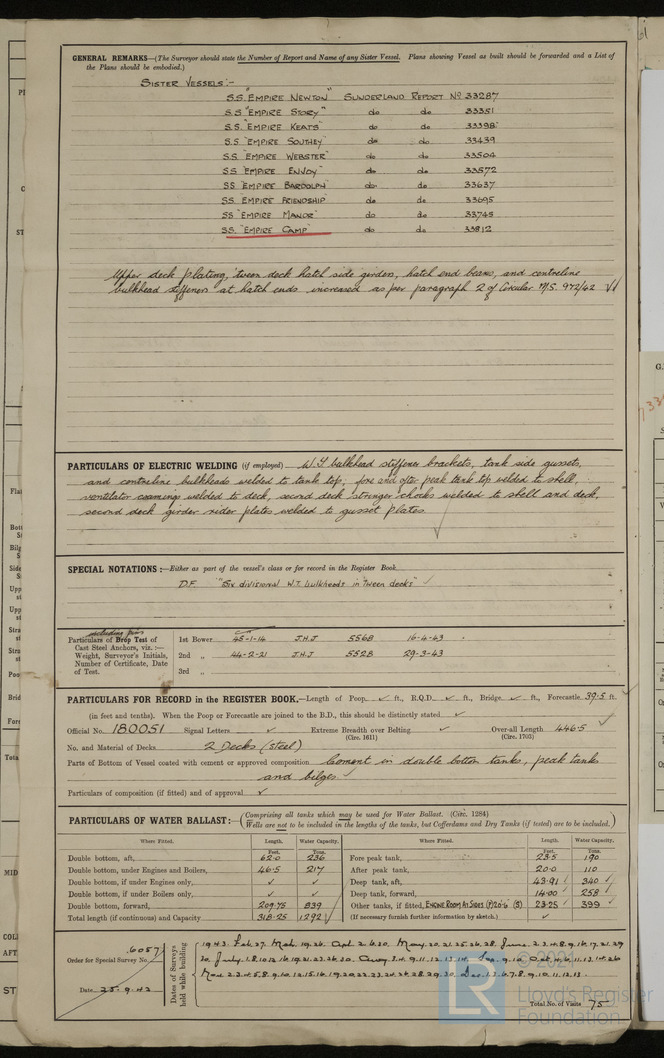 GENERAL REMARKS—(The Surveyor should state the Number of Report and Name of any Sister Vessel. Plans showing Vessel as built should be forwarded and a List of
the Plans should be embodied.)
SISTER VESSELS:-
S.S. "EMPIRE NEWTON" SUNDERLAND REPORT Nº 33287
S.S "EMPIRE STORY" do do 33351
S.S. "EMPIRE KEATS" do do 33398
S.S "EMPIRE SOUTHEY do do 33439
SS "EMPIRE WEBSTER" do do 33504
SS "EMPIRE ENJOY" do do 33572
SS "EMPIRE BARDOLPH do do 33637
SS "EMPIRE FRIENDSHIP do do 33695
SS "EMPIRE MANOR" do do 33745
SS. "EMPIRE CAMP" do do 33812
Upper deck plating, 'tween deck hatch side girders, hatch end beams, and centreline
bulkhead stiffeners at hatch ends increased as per paragraph 2 of Circular M/S. 972/42
PARTICULARS OF ELECTRIC WELDING (if employed) W.T bulkhead stiffener brackets, tank side gussets,
and centreline bulkheads welded to tank top; fore and after peak tank top welded to shell,
ventilator coamings welded to deck, second deck stringer chocks welded to shell and deck,
second deck girder rider plates welded to gusset plates.
SPECIAL NOTATIONS:—Either as part of the vessel's class or for record in the Register Book.
D.F. "Six divisional W.T. bulkheads in 'tween decks"
including pins
Particulars of Drop Test of
Cast Steel Anchors, viz.:—
Weight, Surveyor's Initials,
Number of Certificate, Date
of Test.
1st Bower 45-1-14 J.H.J 5568 16-4-43
2nd „ 44-2-21 J.H.J 5528 29-3-43
3rd „
PARTICULARS FOR RECORD in the REGISTER BOOK.—Length of Poop ft., R.Q.D. ft., Bridge ft., Forecastle 39.5 ft.
(in feet and tenths). When the Poop or Forecastle are joined to the B.D., this should be distinctly stated
Official No. 180051 Signal Letters Extreme Breadth over Belting Over-all Length 446.5
(Circ. 1611) (Circ. 1703)
No. and Material of Decks 2 Decks (steel)
Parts of Bottom of Vessel coated with cement or approved composition Cement in double bottom tanks, peak tanks
and bilges.
Particulars of composition (if fitted) and of approval
PARTICULARS OF WATER BALLAST:— (Comprising all tanks which may be used for Water Ballast. (Circ. 1284)
Wells are not to be included in the lengths of the tanks, but Cofferdams and Dry Tanks (if tested) are to be included.)
Where Fitted. Length. Water Capacity. Where Fitted. Length. Water Capacity.
Feet. Tons. Feet. Tons.
Double bottom, aft, 62.0 236 Fore peak tank, 23.5 190
Double bottom, under Engines and Boilers, 46.5 217 After peak tank, 20.0 110
Double bottom, if under Engines only, Deep tank, aft, 43.91 340
Double bottom, if under Boilers only, Deep tank, forward, 14.00 258
Double bottom, forward, 209.75 839 Other tanks, if fitted, ENGINE ROOM AT SIDES (P) 20.6 (S) 23.25 399
Total length (if continuous) and Capacity 318.25 1292 (If necessary furnish further information by sketch.)
Order for Special Survey No. 6057
Date 25-9-42
Dates of Surveys
held while building
1943. Feb. 27. Mch. 19.26. Apl. 2.6.20. May. 20.21.25.26.28. June. 2.3.4.8.9.16.17.21.29
30. July. 1.8.10.12.16.19.21.23.26.30.
Total No. of Visits 75
© 2021
LR
Lloyd's Register
Foundation